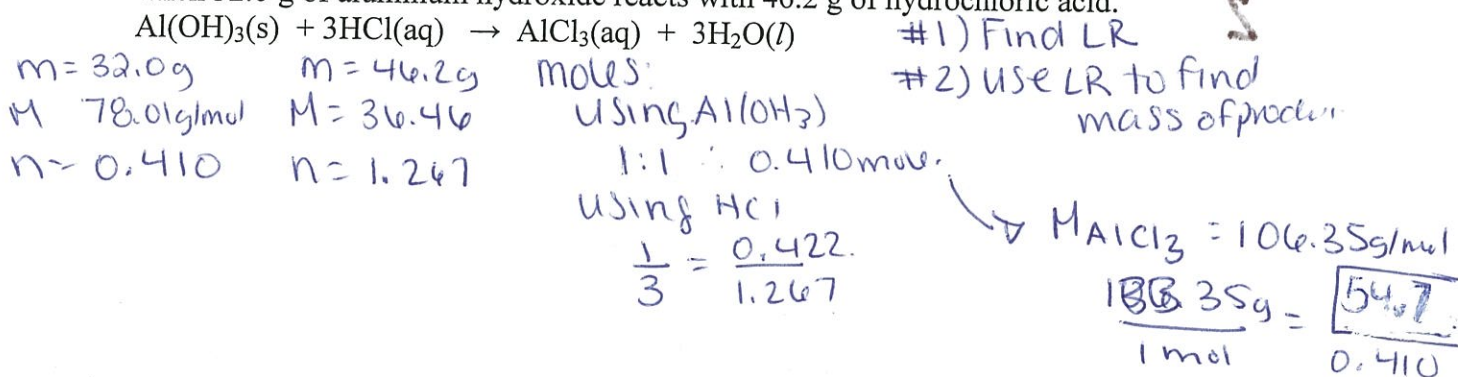 g of aluminum hydroxide reacts with 46.2 g of hydrochloric acid.
Al(OH)₃(s) + 3HCl(aq) → AlCl₃(aq) + 3H₂O(l)
#1) Find LR
#2) use LR to find
mass of
m = 32.0g
M 78.01g/mol
n = 0.410
m = 46.2g
M = 36.46
n = 1.267
moles:
using Al(OH₃)
1:1 ∴ 0.410 mole.
using HCl
1/3 = 0.422/1.267
M AlCl₃ = 106.35g/mol
35g/1 mol = 54.7/0.410